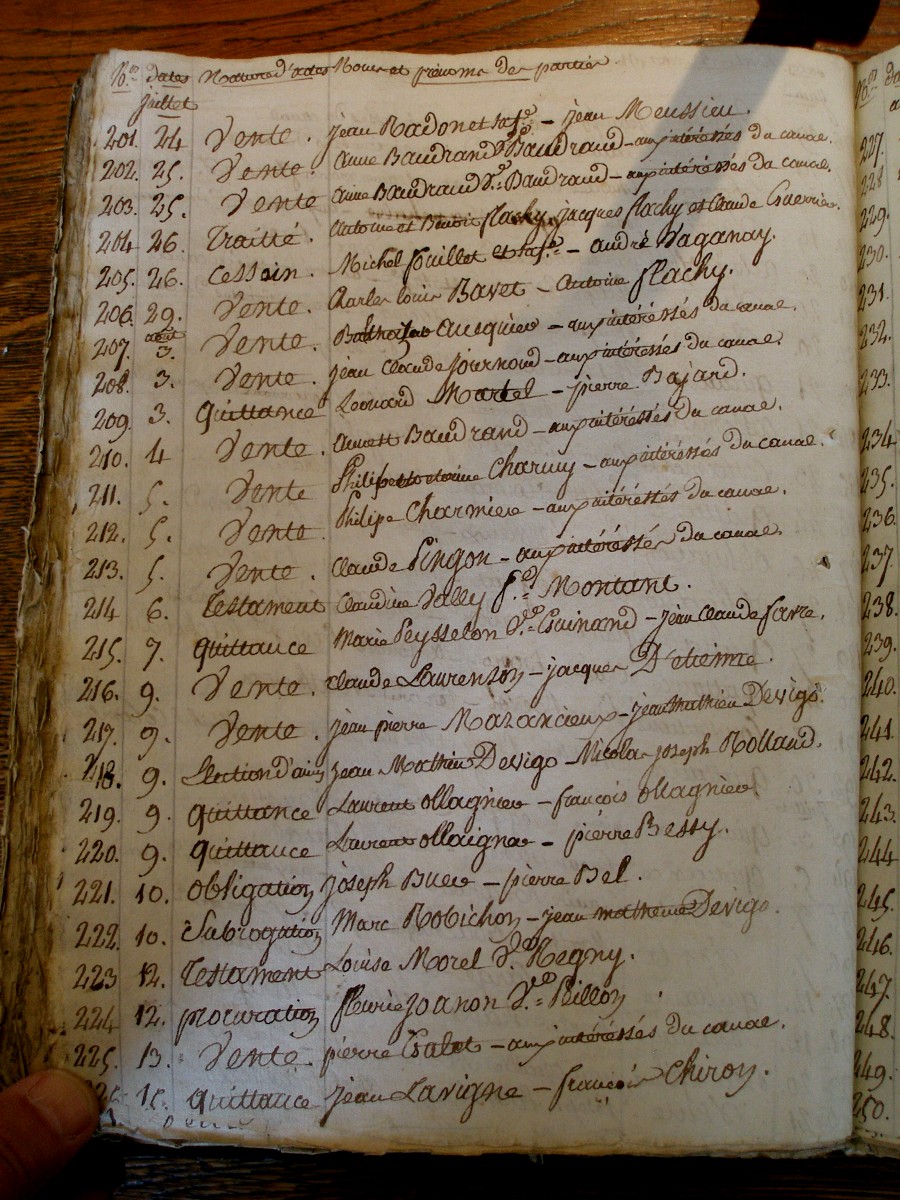 N.os dates Nature d'actes Noms et prénoms des parties
juillet
201. 24 Vente. jean Radon et sa f.e – jean Meussieu. 227.
202. 25. Vente. anne Baudrand V.e Baudrand – aux intéressés du canal. 228
203. 25. Vente anne Baudrand V.e Baudrand – aux intéressés du canal. 229
204 26. Traitté. antoine et Benoit flachy, jacques flachy et Claude Guerrier. 230.
205. 26. Cession. Michel fouillet et sa f.e – andré Vaganay. 231.
206. 29. Vente. Charles louis Bavet – antoine flachy. 232.
aout
207. 3. Vente. Balthazar – aux intéressés du canal. 233.
208. 3. Vente. jean Claude journoud – aux intéressés du canal.
209. 3. quittance Leonard Martel – pierre Bajard. 234
210. 4 Vente. Baudrand – aux intéressés du canal. 235.
211. 5. Vente – aux intéressés du canal. 236.
212. 5. Vente. philipe Charmiere – aux intéressés du canal. 237.
213. 5. Vente. Claude pingon – aux intéressés du canal. 238.
214 6. testament Claudine Vally f.e Montant. 239.
215. 7. quittance Marie peysselon V.e Guinand – jean Claude favre. 240.
216. 9. Vente. Claude Laurenson – jacques D'etienne. 241.
217. 9. Vente. jean pierre Mazancieux – jean Mathieu Devigo. 242.
218. 9. Election d'ami jean Mathieu Devigo – Nicolas joseph Rolland. 243.
219. 9. quittance Laurent ollagnier – françois ollagnier 244
220. 9. quittance Laurent ollaignier – pierre Bessy. 245.
221. 10. obligation joseph Buer – pierre Bel. 246.
222. 10. Subrogation Marc Robichon – jean mathieu Devigo. 247.
223 12. testament Louise Morel V.e Regny. 248.
224 12. procuration fleurie joanon V.e Rillon 249.
225. 13. Vente pierre Galet – aux intéressés du canal. 250.
15. quittance jean Lavigne – françois Chiron.